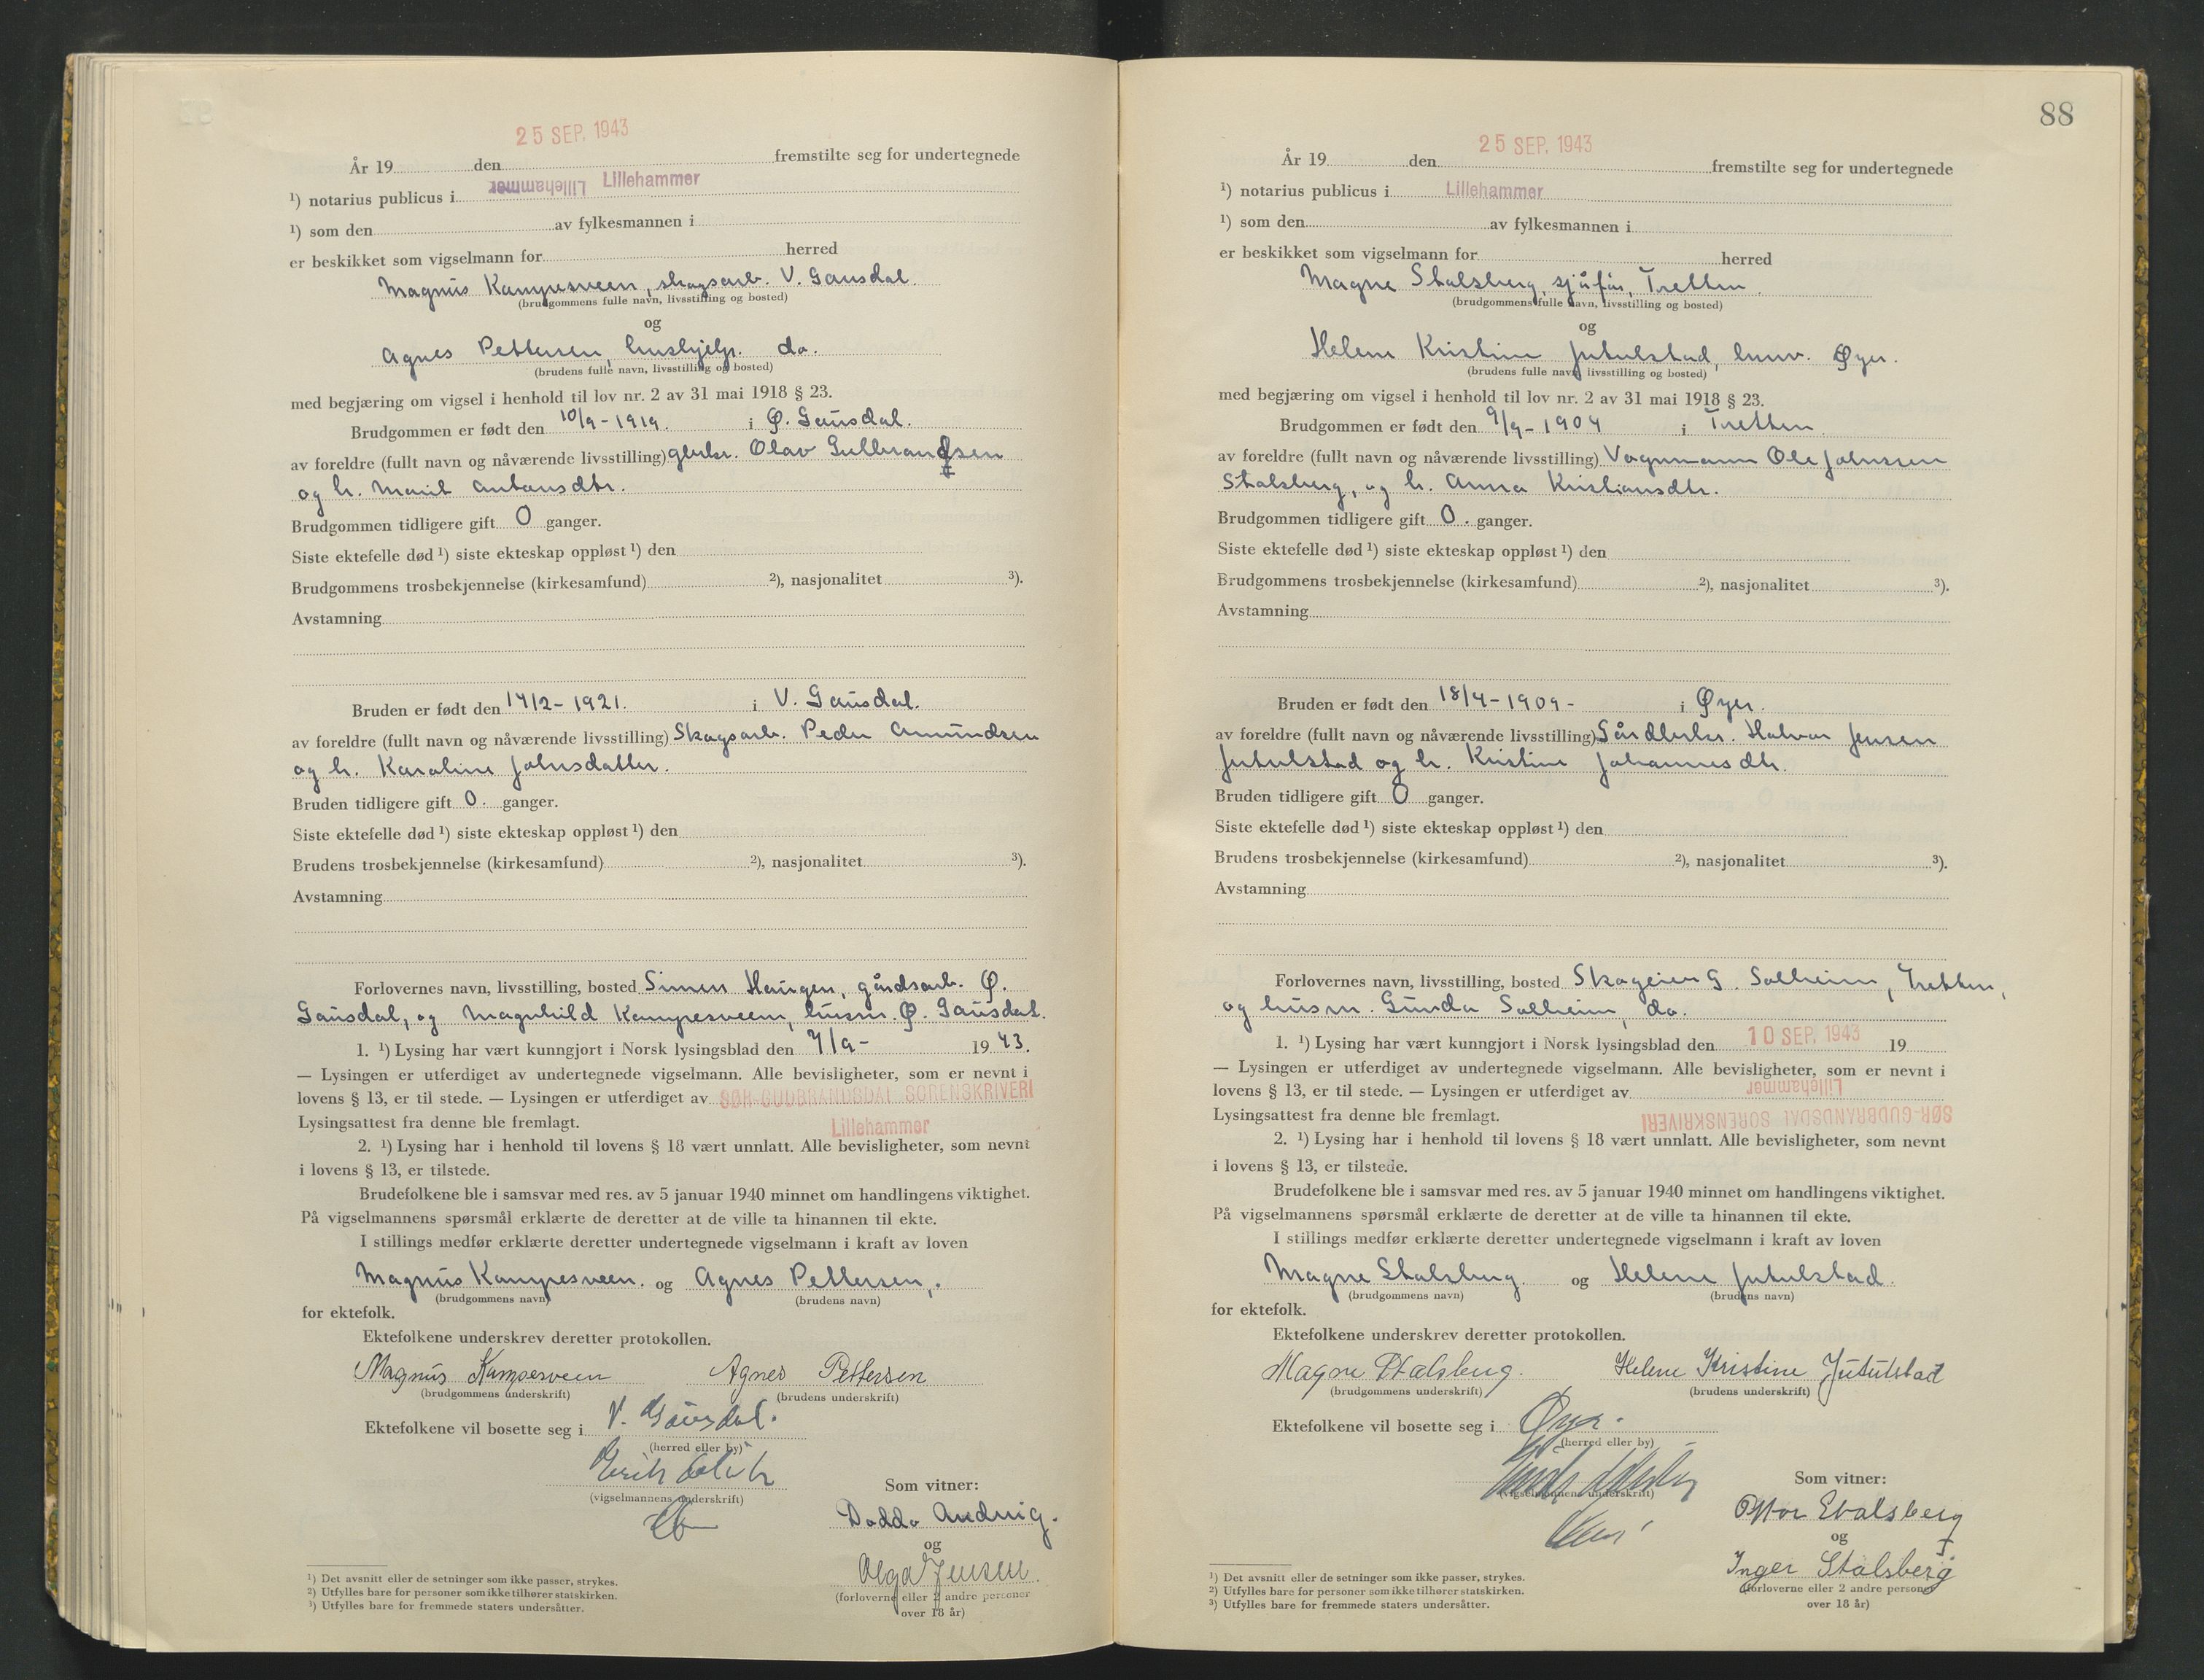 25 SEP. 1943
År 19 den fremstilte seg for undertegnede
¹) notarius publicus i Lillehammer Lillehammer
¹) som den av fylkesmannen i
er beskikket som vigselmann for herred
Magnus Kampesveen, skogsarb. V. Gausdal.
(brudgommens fulle navn, livsstilling og bosted)
og
Agnes Pettersen, hushjelp. do.
(brudens fulle navn, livsstilling og bosted)
med begjæring om vigsel i henhold til lov nr. 2 av 31 mai 1918 § 23.
Brudgommen er født den 10/9-1919. i Ø. Gausdal.
av foreldre (fullt navn og nåværende livsstilling) gbrukr. Olav Gulbrandsen
og h. Marit Antonsdtr.
Brudgommen tidligere gift 0 ganger.
Siste ektefelle død ¹) siste ekteskap oppløst ¹) den
Brudgommens trosbekjennelse (kirkesamfund) ²), nasjonalitet ³).
Avstamning
Bruden er født den 14/2-1921. i V. Gausdal.
av foreldre (fullt navn og nåværende livsstilling) Skogsarb. Peder Amundsen
og h. Karoline Johnsdatter.
Bruden tidligere gift 0. ganger.
Siste ektefelle død ¹) siste ekteskap oppløst ¹) den
Brudens trosbekjennelse (kirkesamfund) ²), nasjonalitet ³).
Avstamning
Forlovernes navn, livsstilling, bosted Simen Haugen, gårdsarb. Ø.
Gausdal, og Magnhild Kampesveen, husm. Ø. Gausdal.
1. ¹) Lysing har vært kunngjort i Norsk lysingsblad den 7/9- 1943.
— Lysingen er utferdiget av undertegnede vigselmann. Alle bevisligheter, som er nevnt i
lovens § 13, er til stede. — Lysingen er utferdiget av SØR-GUDBRANDSDAL SORENSKRIVERI
Lysingsattest fra denne ble fremlagt. Lillehammer
2. ¹) Lysing har i henhold til lovens § 18 vært unnlatt. Alle bevisligheter, som nevnt
i lovens § 13, er tilstede.
Brudefolkene ble i samsvar med res. av 5 januar 1940 minnet om handlingens viktighet.
På vigselmannens spørsmål erklærte de deretter at de ville ta hinannen til ekte.
I stillings medfør erklærte deretter undertegnede vigselmann i kraft av loven
Magnus Kampesveen. og Agnes Pettersen.
(brudgommens navn) (brudens navn)
for ektefolk.
Ektefolkene underskrev deretter protokollen.
Magnus Kampesveen Agnes Pettersen
(brudgommens underskrift) (brudens underskrift)
Ektefolkene vil bosette seg i V. Gausdal.
(herred eller by)
(vigselmannens underskrift)
Som vitner:
Dodda
og
Olga Jensen.
(forloverne eller 2 andre personer
over 18 år)
¹) Det avsnitt eller de setninger som ikke passer, strykes.
²) Utfylles bare for personer som ikke tilhører statskirken.
³) Utfylles bare for fremmede staters undersåtter.
88
25 SEP. 1943
År 19 den fremstilte seg for undertegnede
¹) notarius publicus i Lillehammer
¹) som den av fylkesmannen i
er beskikket som vigselmann for herred
Magne Stalsberg, sjåfør, Tretten.
(brudgommens fulle navn, livsstilling og bosted)
og
Helene Kristine Jutulstad, Øyer.
(brudens fulle navn, livsstilling og bosted)
med begjæring om vigsel i henhold til lov nr. 2 av 31 mai 1918 § 23.
Brudgommen er født den 9/9-1904 i Tretten.
av foreldre (fullt navn og nåværende livsstilling) Vognmann Ole Johnsen
Stalsberg, og h. Anna Kristiansdtr.
Brudgommen tidligere gift 0. ganger.
Siste ektefelle død ¹) siste ekteskap oppløst ¹) den
Brudgommens trosbekjennelse (kirkesamfund) ²), nasjonalitet ³).
Avstamning
Bruden er født den 18/4-1909- i Øyer.
av foreldre (fullt navn og nåværende livsstilling) Gårdbrkr. Halvor Jensen
Jutulstad og h. Kristine Johannesdtr.
Bruden tidligere gift 0 ganger.
Siste ektefelle død ¹) siste ekteskap oppløst ¹) den
Brudens trosbekjennelse (kirkesamfund) ²), nasjonalitet ³).
Avstamning
Forlovernes navn, livsstilling, bosted Skogeier G. Solheim, Tretten,
og husm. Gunda Solheim, do.
1. ¹) Lysing har vært kunngjort i Norsk lysingsblad den 10 SEP. 1943 19
— Lysingen er utferdiget av undertegnede vigselmann. Alle bevisligheter, som er nevnt i
lovens § 13, er til stede. — Lysingen er utferdiget av Lillehammer
Lysingsattest fra denne ble fremlagt. SØR-GUDBRANDSDAL SORENSKRIVERI
2. ¹) Lysing har i henhold til lovens § 18 vært unnlatt. Alle bevisligheter, som nevnt
i lovens § 13, er tilstede.
Brudefolkene ble i samsvar med res. av 5 januar 1940 minnet om handlingens viktighet.
På vigselmannens spørsmål erklærte de deretter at de ville ta hinannen til ekte.
I stillings medfør erklærte deretter undertegnede vigselmann i kraft av loven
Magne Stalsberg. og Helene Jutulstad.
(brudgommens navn) (brudens navn)
for ektefolk.
Ektefolkene underskrev deretter protokollen.
Magne Stalsberg. Helene Kristine Jutulstad
(brudgommens underskrift) (brudens underskrift)
Ektefolkene vil bosette seg i Øyer.
(herred eller by)
(vigselmannens underskrift)
Som vitner:
Stalsberg
og
Inger Stalsberg
(forloverne eller 2 andre personer
over 18 år)
¹) Det avsnitt eller de setninger som ikke passer, strykes.
²) Utfylles bare for personer som ikke tilhører statskirken.
³) Utfylles bare for fremmede staters undersåtter.